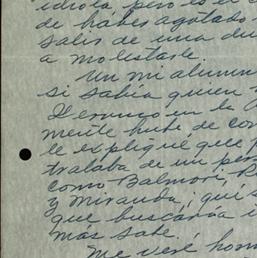 idiota, pero es el c
de haber agotado
salir de una du
a molestarle.
Un mi alumn
si sabía quien
y Terranco en la A
mente hube de con
le expliqué que p
trataba de un per
como Balmori, R
y Miranda, qui s
que buscaría i
más sabe.
Me veré hon